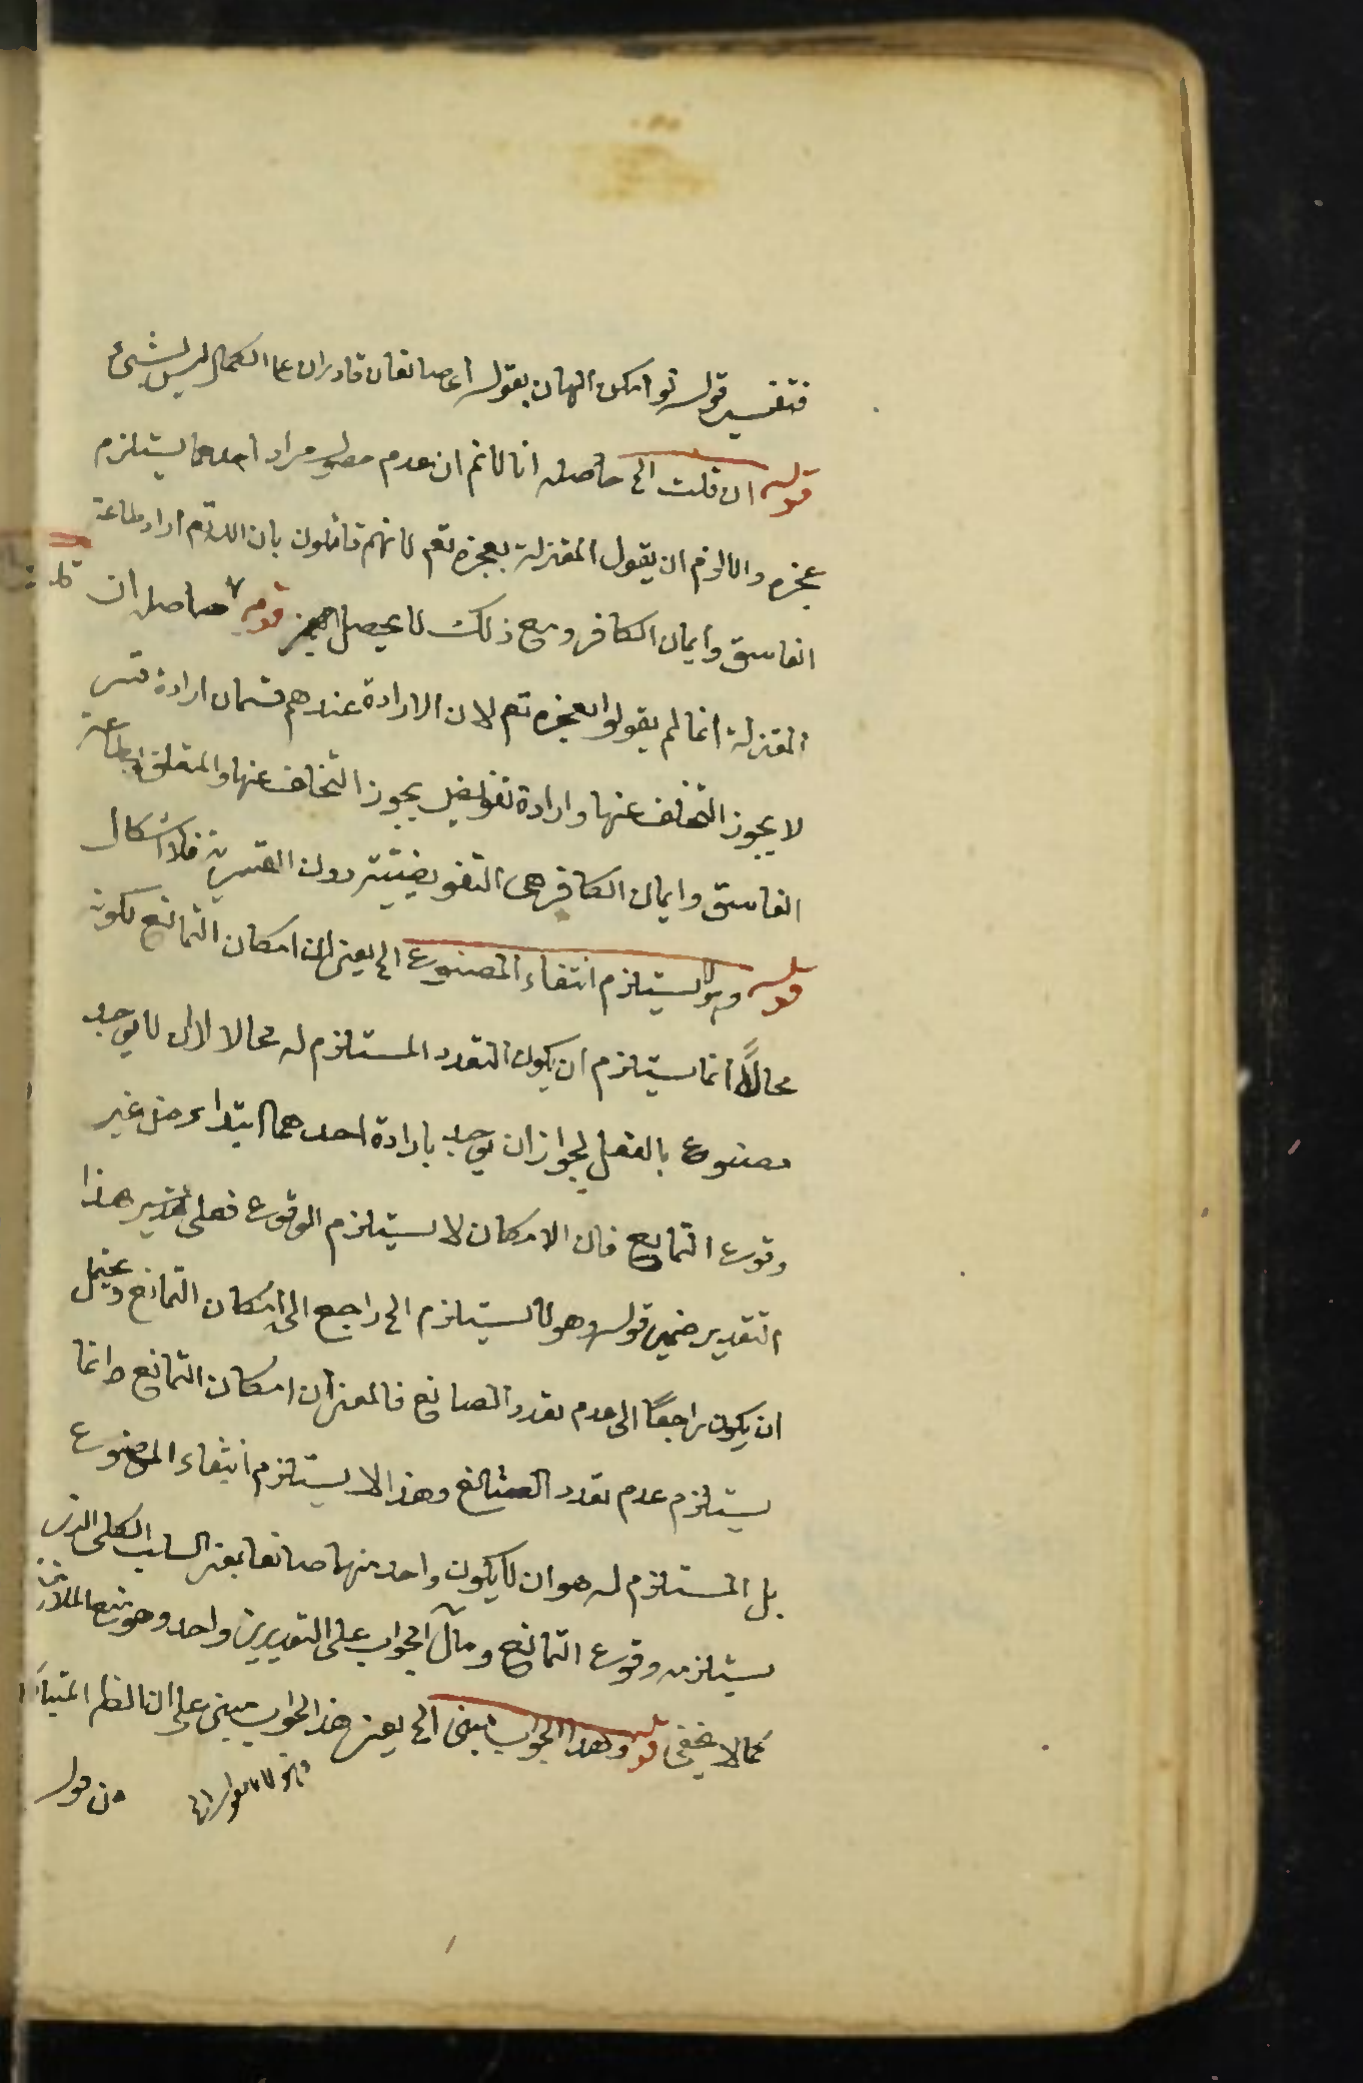 فتفسير قوله لو امكن الهان بقوله اى صانعان قادران على الكمال ليس بشيئ
قوله ان قلت الخ حاصله انا لانم ان عدم حصول مراد احدهما يستلزم
عجزه والا لزم ان يقول المعتزلة بعجزه تعم لانهم قائلون بان الله تعم اراد طاعة
الفاسق وايمان الكافر ومع ذلك لا يحصل قوله قلت حاصله ان
المعتزلة انما لم يقولوا بعجزه تعم لان الارادة عندهم قسمان ارادة قسر
لا يجوز التخلف عنها وارادة تفويض يجوز التخلف عنها والمتعلق بطاعة
الفاسق وايمان الكافر هى التفويضية دون القسرية فلا اشكال
قوله وهو لا يستلزم انتفاء المصنوع الخ يعنى ان امكان التمانع لكونه
محالاً انما يستلزم ان يكون التعدد المستلزم له محالا لا ان لا يوجد
مصنوع بالفعل لجواز ان يوجد بارادة احدهما ابتداء من غير
وقوع التمانع فان الامكان لا يستلزم الوقوع فعلى هذا
التقدير ضمير قوله وهو لا يستلزم الخ راجع الى امكان التمانع ويحتمل
ان يكون راجعاً الى عدم تعدد الصانع فالمعنى ان امكان التمانع انما
يستلزم عدم تعدد الصانع وهذا لا يستلزم انتفاء المصنوع
بل المستلزم له هو ان لا يكون واحد منهما صانعا بمعنى السلب الكلى الذى
يستلزمه وقوع التمانع ومآل الجواب على التقديرين واحد وهو منع الملازمة
كما لا يخفى قوله وهذا الجواب مبنى الخ يعنى هذا الجواب مبنى على ان الظاهر المتبادر
من قوله